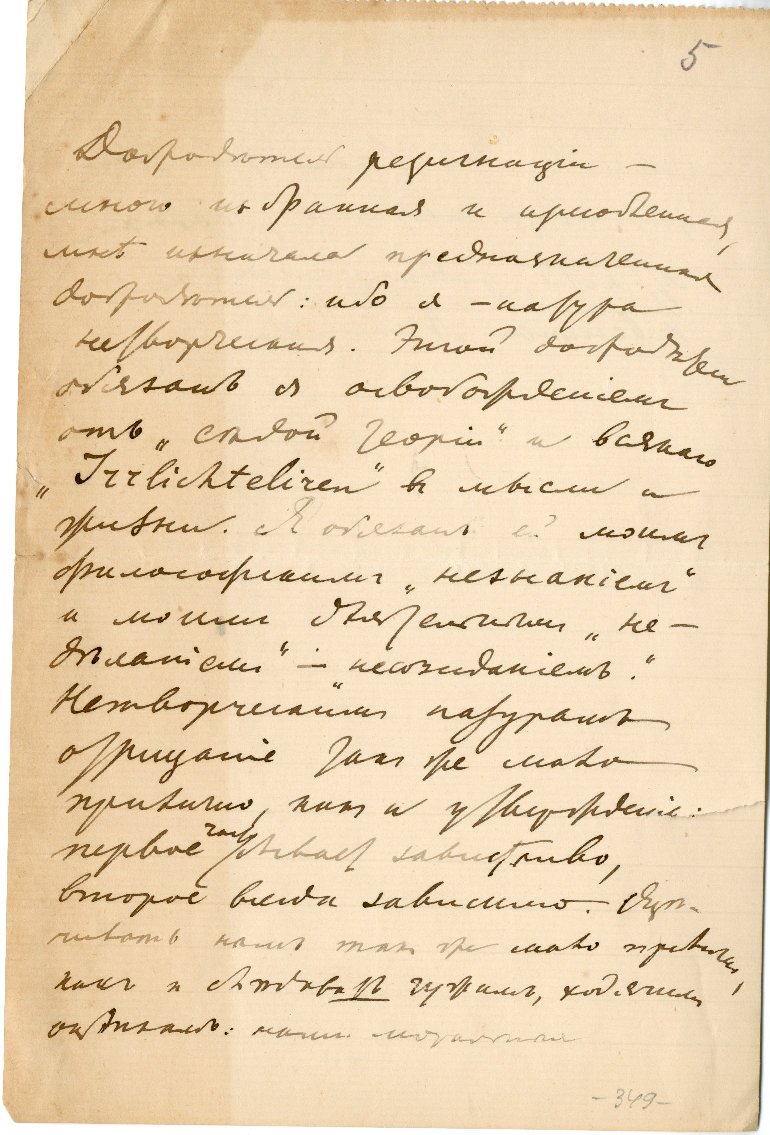 5
Добродѣтель резигнаціи —
мною избранная и излюбленная,
мнѣ изначала предназначенная
добродѣтель: ибо я — натура
нетворческая. Этой добродѣтели
обязанъ я освобожденіемъ
отъ „сѣдой теоріи“ и всякаго
„Irrlichteliren“ въ мысли и
жизни. Я обязанъ ей моимъ
философскимъ „незнаніемъ“
и моимъ дѣятельнымъ „не-
дѣланіемъ“ — несозиданіемъ“.
Нетворческимъ натурамъ
отрицаніе такъ же мало
прилично, какъ и утвержденіе:
первое часто бываетъ завистливо,
второе всегда зависимо.
намъ такъ же мало прилично,
какъ и слѣдовать чужимъ, ходячимъ
оцѣнкамъ: наши моральныя
-349-